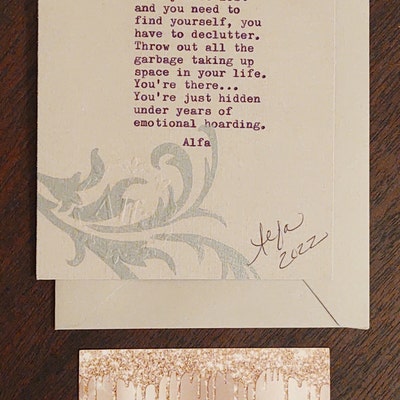 and you need to
find yourself, you
have to declutter.
Throw out all the
garbage taking up
space in your life.
You're there...
You're just hidden
under years of
emotional hoarding.
Alfa
Alfa
2022